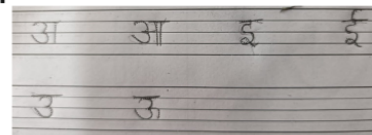 अ आ इ ई
उ ऊ